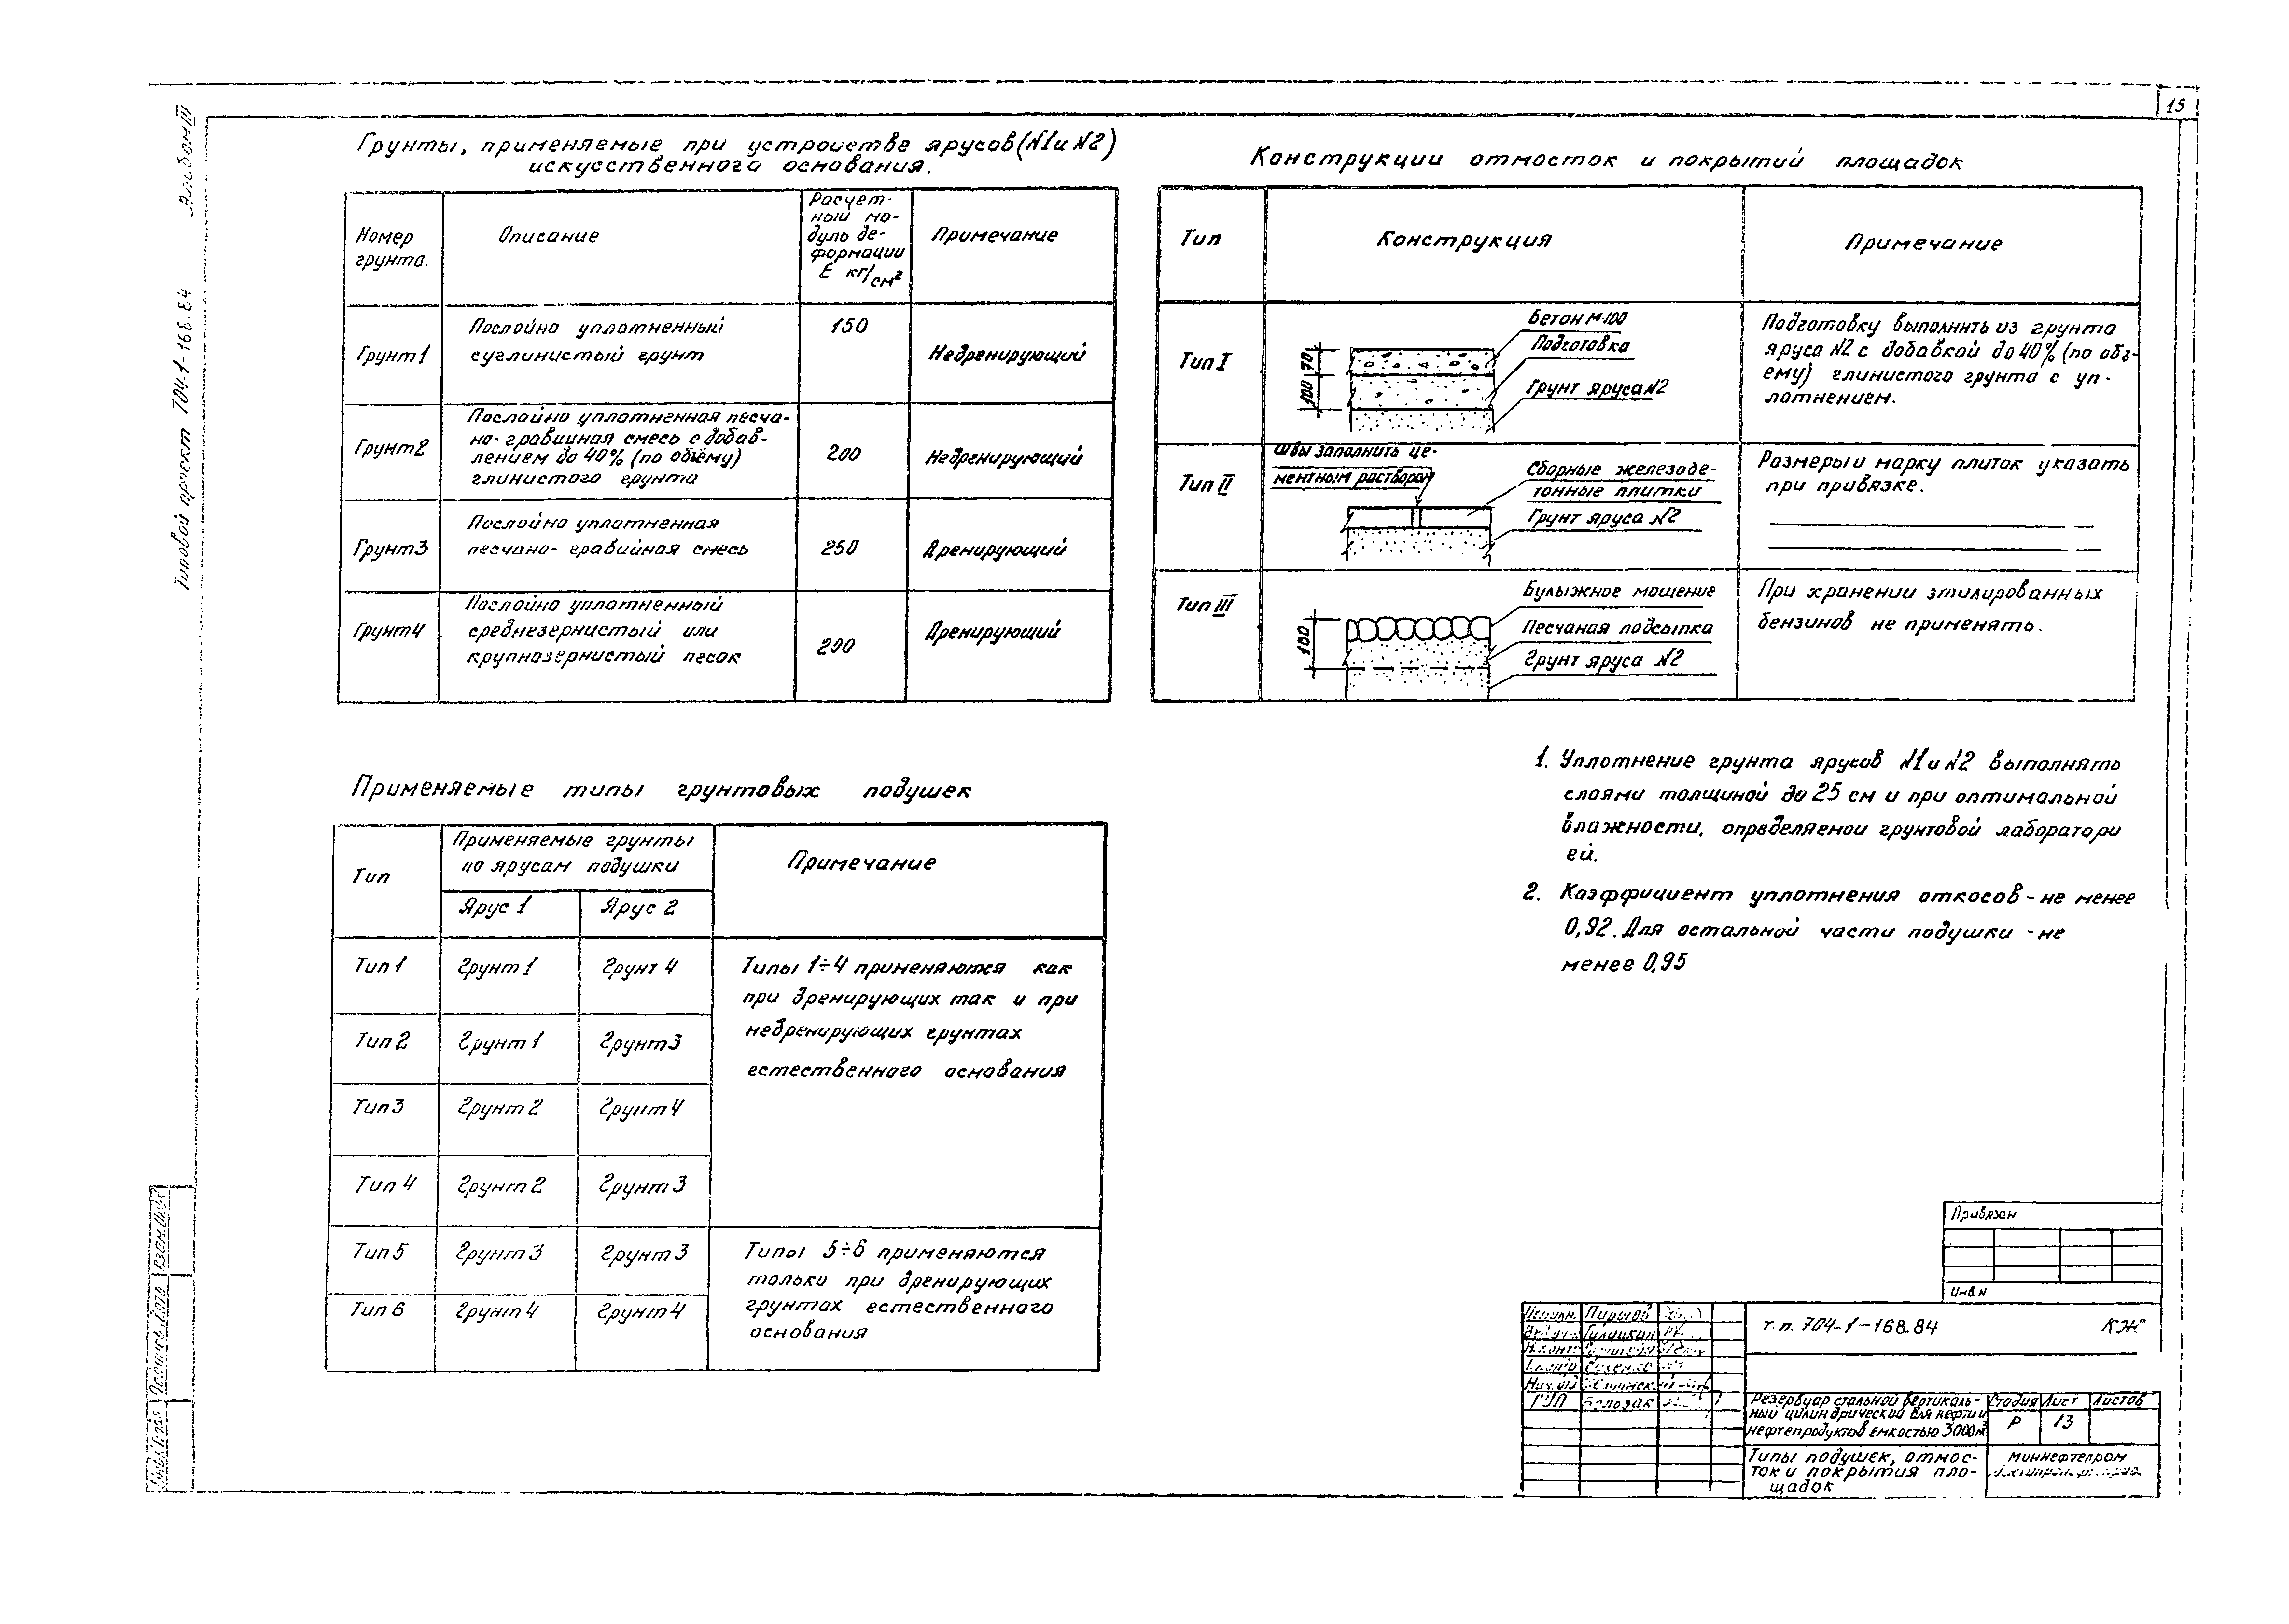 15
Альбом III
Типовой проект 704-1-168.84
Грунты, применяемые при устройстве ярусов (N1 и N2)
искусственного основания.
Номер
грунта.
Описание
Расчет-
ный мо-
дуль де-
формации
E кг/см²
Примечание
Грунт 1
Послойно уплотненный
суглинистый грунт
150
Недренирующий
Грунт 2
Послойно уплотненная песча-
но-гравийная смесь с добав-
лением до 40% (по объёму)
глинистого грунта
200
Недренирующий
Грунт 3
Послойно уплотненная
песчано-гравийная смесь
250
Дренирующий
Грунт 4
Послойно уплотненный
среднезернистый или
крупнозернистый песок
200
Дренирующий
Конструкции отмосток и покрытий площадок
Тип
Конструкция
Примечание
Тип I
70
100
Бетон М-100
Подготовка
Грунт яруса N2
Подготовку выполнить из грунта
яруса N2 с добавкой до 40% (по объ-
ему) глинистого грунта с уп-
лотнением.
Тип II
Швы заполнить це-
ментным раствором
Сборные железобе-
тонные плитки
Грунт яруса N2
Размеры и марку плиток указать
при привязке.
Тип III
100
Булыжное мощение
Песчаная подсыпка
Грунт яруса N2
При хранении этилированных
бензинов не применять.
Применяемые типы грунтовых подушек
Тип
Применяемые грунты
по ярусам подушки
Ярус 1
Ярус 2
Примечание
Тип 1
Грунт 1
Грунт 4
Тип 2
Грунт 1
Грунт 3
Тип 3
Грунт 2
Грунт 4
Тип 4
Грунт 2
Грунт 3
Типы 1÷4 применяются как
при дренирующих так и при
недренирующих грунтах
естественного основания
Тип 5
Грунт 3
Грунт 3
Тип 6
Грунт 4
Грунт 4
Типы 5÷6 применяются
только при дренирующих
грунтах естественного
основания
1. Уплотнение грунта ярусов N1 и N2 выполнять
слоями толщиной до 25 см и при оптимальной
влажности, определяемой грунтовой лаборатори
ей.
2. Коэффициент уплотнения откосов - не менее
0,92. Для остальной части подушки - не
менее 0,95
Привязан
Инв. N
Исполн. Пирогов
Н.контр
Нач.отд
ГИП
т.п. 704-1-168.84 КЖ
Резервуар стальной вертикаль-
ный цилиндрический для нефти и
нефтепродуктов емкостью 3000 м³
Стадия Лист Листов
Р 13
Типы подушек, отмос-
ток и покрытия пло-
щадок
Миннефтепром